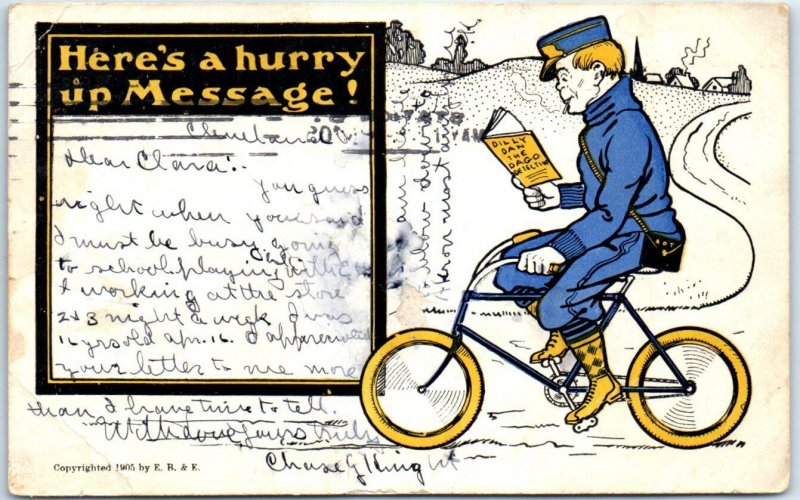 Here's a hurry
up Message!
Cleveland
Dear Clara:.
You guess
right when you said
I must be busy going
to school playing
& working at the store
2 & 3 night a week I was
16 yrs old Apr. 16. I appreciated
your letter to me more
than I have time to tell.
With love yours truly
Chase G Knight
DILLY
DAN
THE
DAGO
DETECTIVE
ADT
Copyrighted 1905 by E. B. & E.